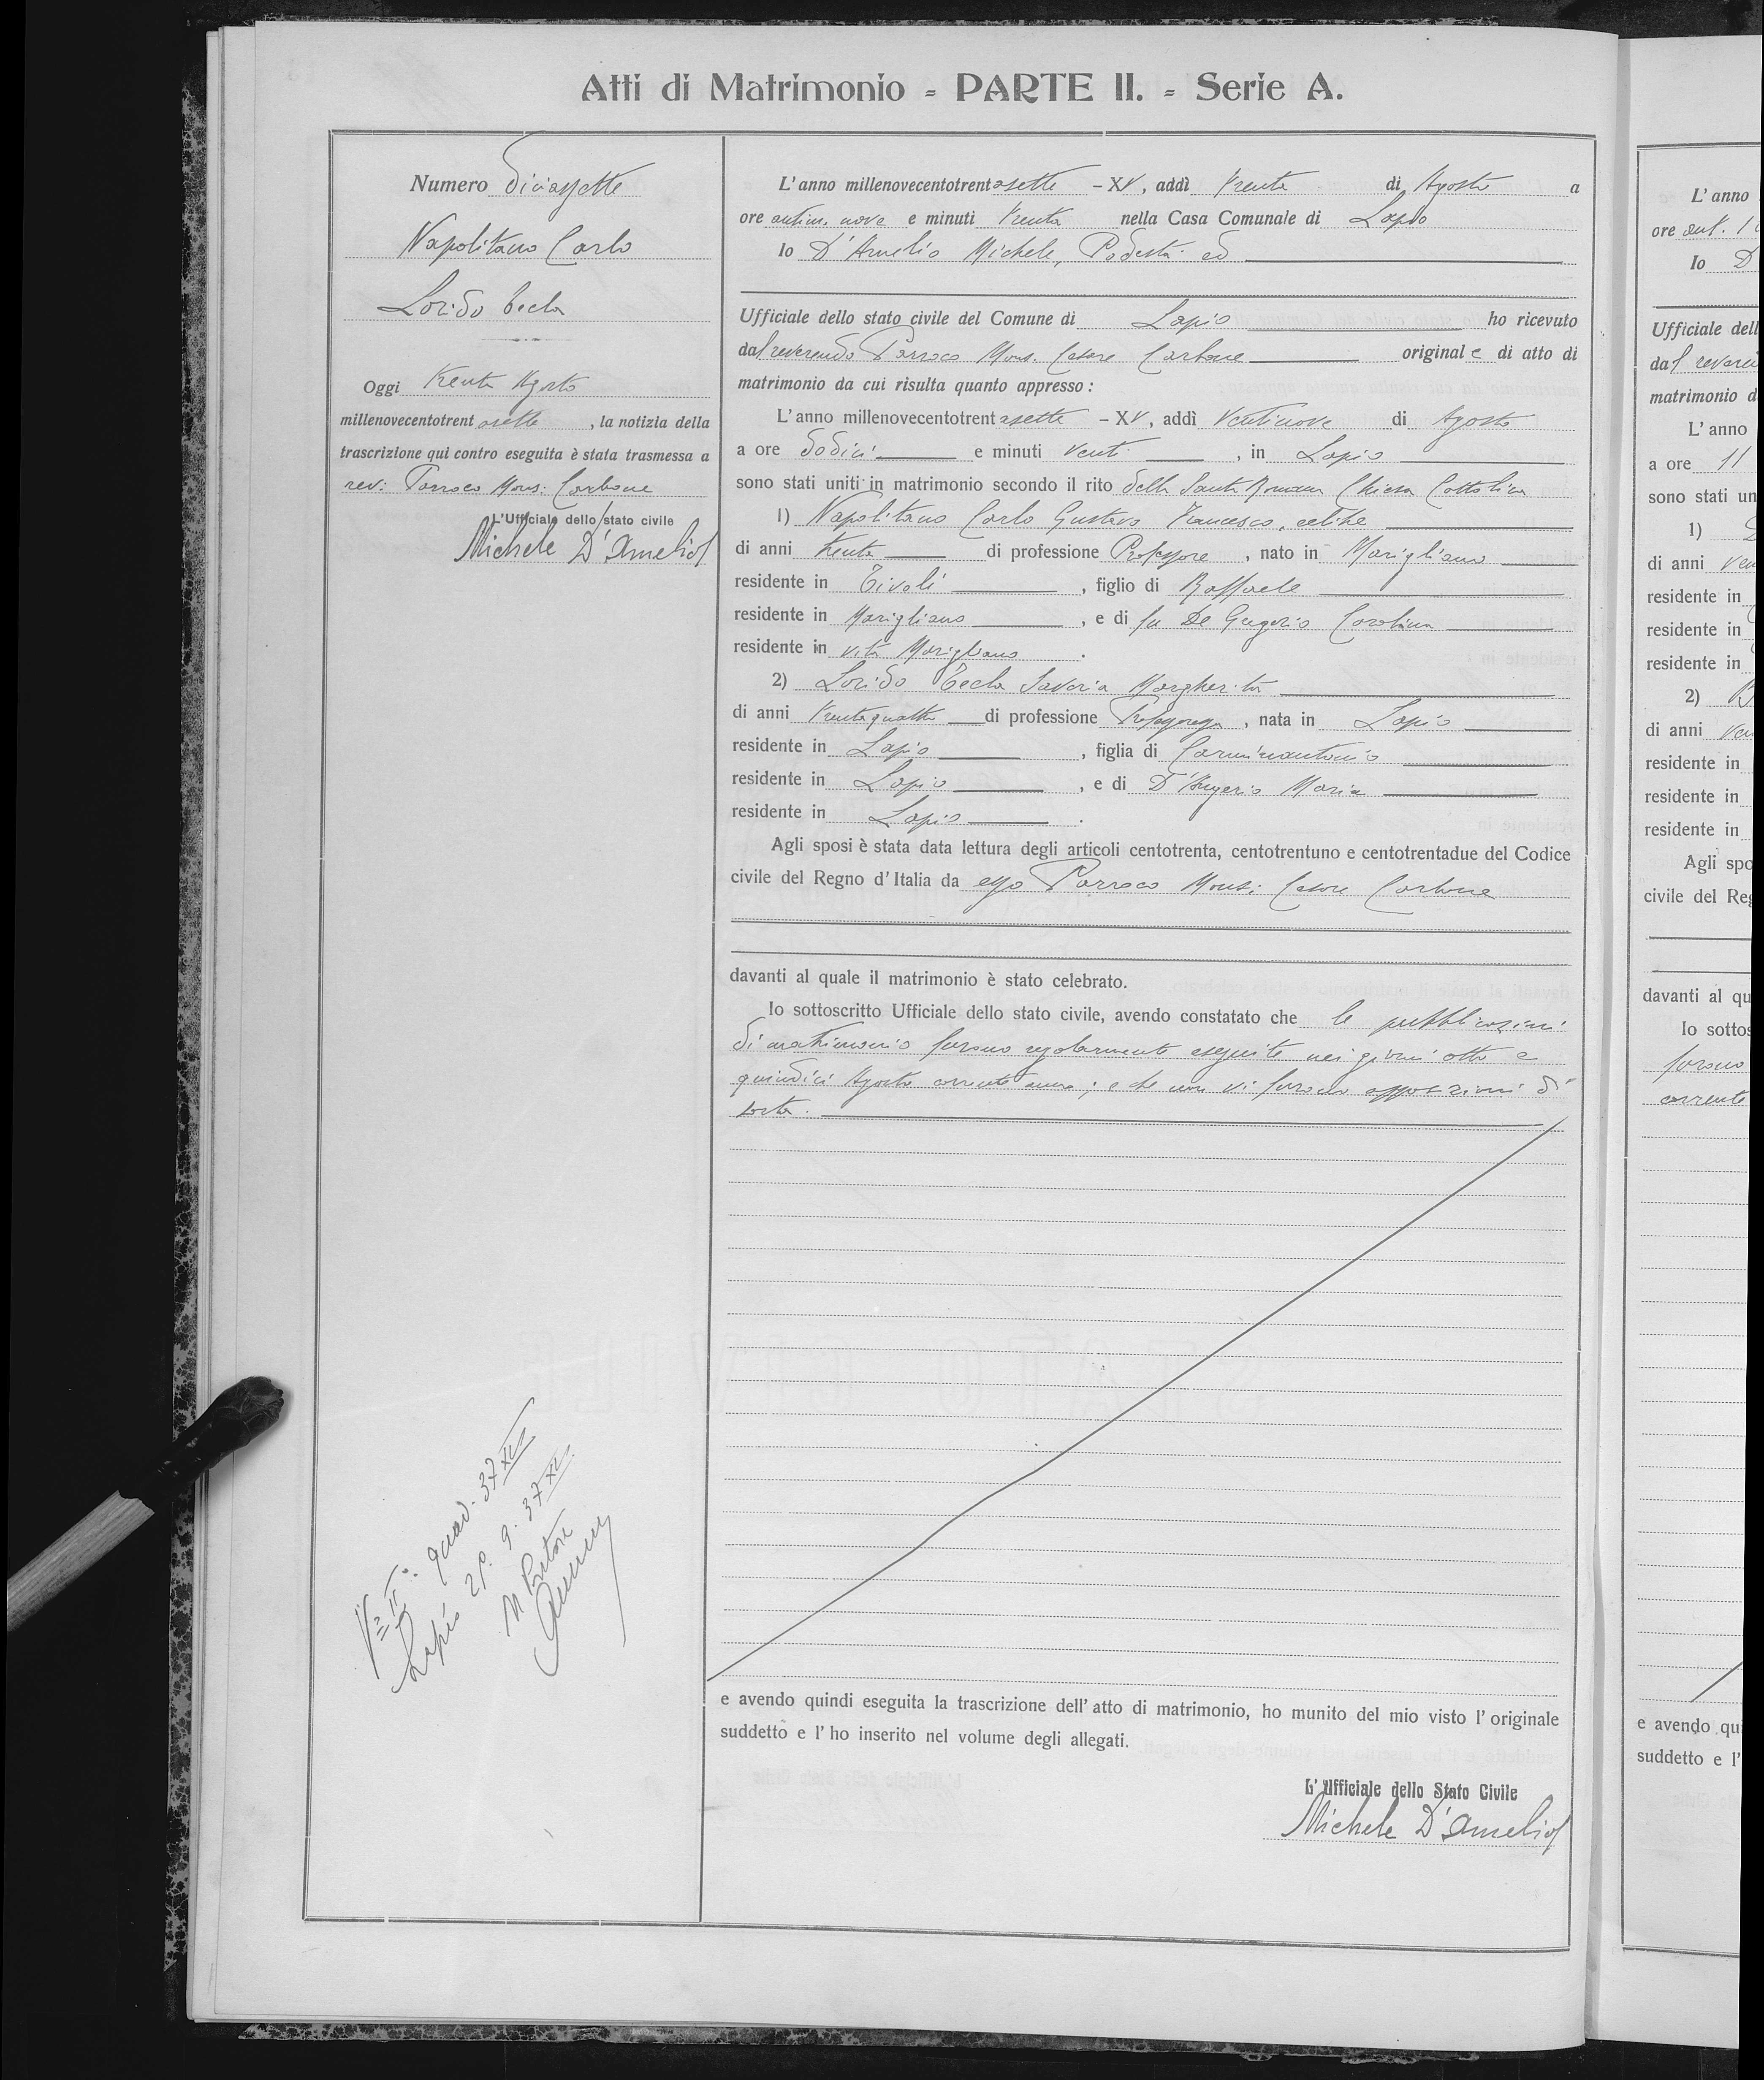 Atti di Matrimonio = PARTE II. = Serie A.
Numero Diciassette
Napolitano Carlo
Lorido Tecla
Oggi trenta Agosto
millenovecentotrentasette, la notizia della
trascrizione qui contro eseguita è stata trasmessa a
rev: Parroco Mons: Carbone
L'Ufficiale dello stato civile
Michele D'Amelio
L'anno millenovecentotrentasette - XV, addì trenta di Agosto a
ore antim. nove e minuti trenta nella Casa Comunale di Lapio
Io D'Amelio Michele, Podestà ed
Ufficiale dello stato civile del Comune di Lapio ho ricevuto
dal reverendo Parroco Mons. Cesare Carbone originale di atto di
matrimonio da cui risulta quanto appresso:
L'anno millenovecentotrentasette - XV, addì ventinove di Agosto
a ore dodici e minuti venti, in Lapio
sono stati uniti in matrimonio secondo il rito della Santa Romana Chiesa Cattolica
1) Napolitano Carlo Gustavo Francesco, celibe
di anni trenta di professione Professore, nato in Marigliano
residente in Tivoli, figlio di Raffaele
residente in Marigliano, e di fu De Gregorio Carolina
residente in vita Marigliano.
2) Lorido Tecla Saveria Margherita
di anni trentaquattro di professione Professoressa, nata in Lapio
residente in Lapio, figlia di Carminantonio
residente in Lapio, e di D'Angerio Maria
residente in Lapio.
Agli sposi è stata data lettura degli articoli centotrenta, centotrentuno e centotrentadue del Codice
civile del Regno d'Italia da esso Parroco Mons: Cesare Carbone
davanti al quale il matrimonio è stato celebrato.
Io sottoscritto Ufficiale dello stato civile, avendo constatato che le pubblicazioni
di matrimonio furono regolarmente eseguite nei giorni otto e
quindici Agosto corrente anno; e che non vi furono opposizioni di
sorta.
e avendo quindi eseguita la trascrizione dell'atto di matrimonio, ho munito del mio visto l'originale
suddetto e l'ho inserito nel volume degli allegati.
L'Ufficiale dello Stato Civile
Michele D'Amelio
II° quad. 37 XV
Lapio 9. 37 XV
Il Pretore
L'anno
ore ant. 1
Io D
Ufficiale dell
dal revere
matrimonio d
L'anno
a ore 11
sono stati un
1)
di anni ven
residente in
residente in
residente in
2)
di anni ven
residente in
residente in
residente in
Agli spo
civile del Reg
davanti al qu
Io sottos
furono
corrente
e avendo qui
suddetto e l'